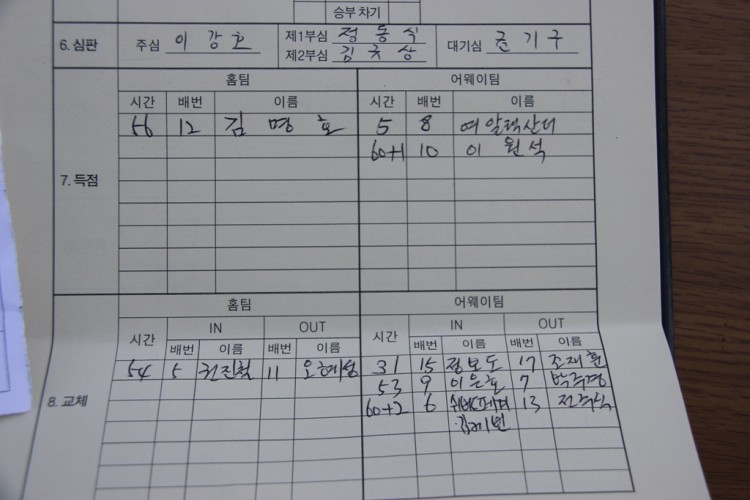 승부 차기
6. 심판 주심 이 강 제1부심 정 동 식 대기심 기 구
제2부심 김 국 상
홈팀 어웨이팀
시간 배번 이름 시간 배번 이름
56 12 김 명 호 5 8 여 알렉산더
60+1 10 이 원 석
7. 득점
홈팀 어웨이팀
시간 IN OUT 시간 IN OUT
배번 이름 배번 이름 배번 이름 배번 이름
54 5 권진철 11 오혜성 31 15 정보도 17 조재훈
53 9 이은호 7
8. 교체
60+2 6 13